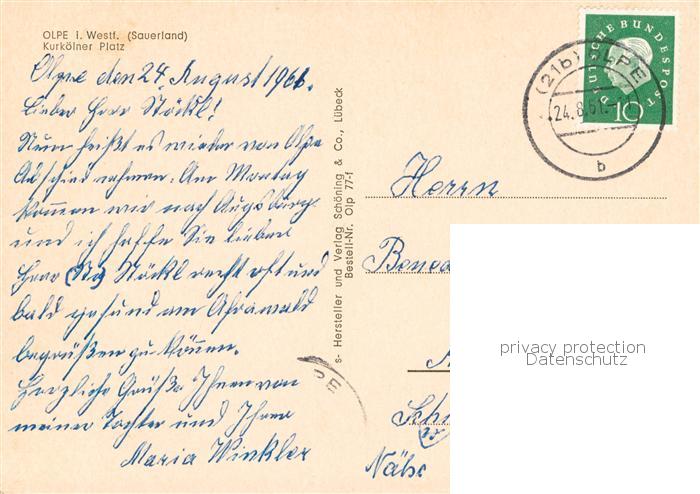 OLPE i. Westf. (Sauerland)
Kurkölner Platz
Olpe den 24. August 1961.
Lieber Herr Stöckl!
Nun heißt es wieder von Olpe
Abschied nehmen. Am Montag
kommen wir nach Augsburg
und ich hoffe Sie lieber
Herr Stöckl recht oft und
bald gesund am Afrawald
begrüßen zu können.
Herzliche Grüße Ihnen von
meiner Tochter und Ihrer
Maria Winkler
s- Hersteller und Verlag Schöning & Co., Lübeck
Bestell-Nr. Olp 77-f
DEUTSCHE BUNDESPOST
10
(21b) OLPE
24.8.61.
b
PE
Herrn
Bened
Sch
Nähe
privacy protection
Datenschutz